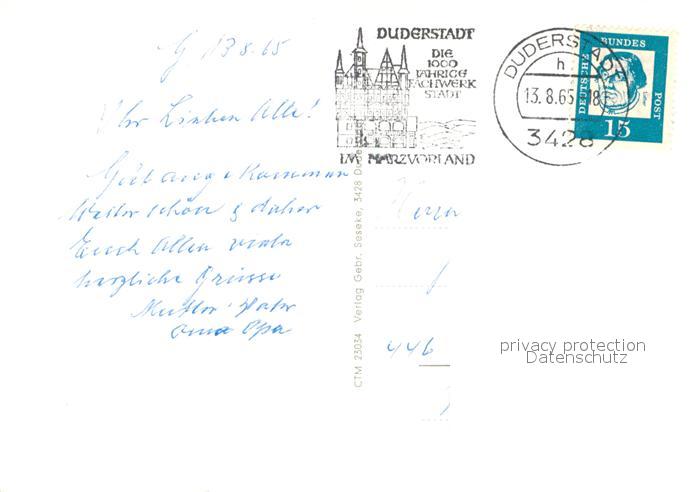 G 13.8.65
Ihr Lieben Alle!
Gut angekommen
Wetter schön & daher
Euch Allen viele
herzliche Grüsse
Mutter Vater
Oma Opa
DUDERSTADT
DIE
1000
JÄHRIGE
FACHWERK
STADT
IM HARZVORLAND
DUDERSTADT
h
13.8.65-18
3428
DEUTSCHE
BUNDES
POST
15
CTM 23034 Verlag Gebr. Seseke, 3428 Duderstadt
446
privacy protection
Datenschutz